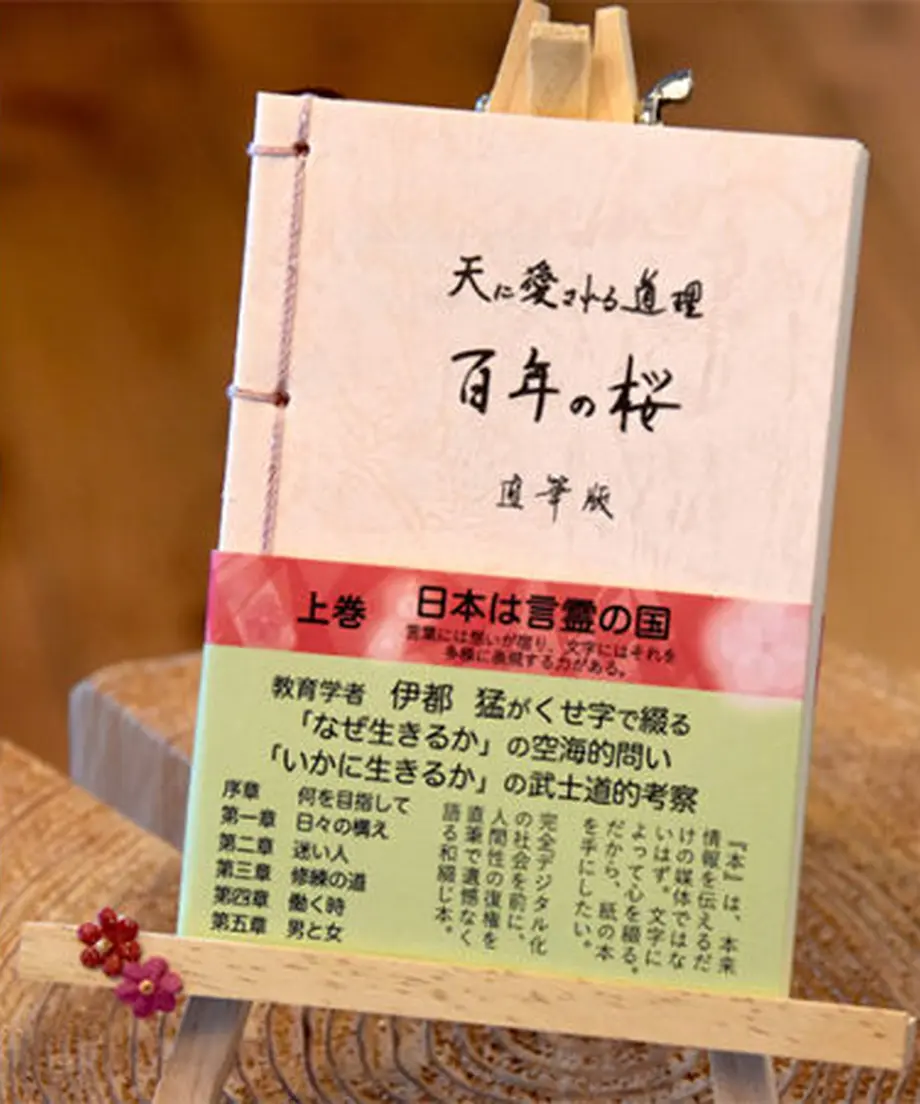 天に愛される道理
百年の桜
直筆版
上巻 日本は言霊の国
言葉には想いが宿り、文字にはそれを
多様に表現する力がある。
教育学者 伊都 猛がくせ字で綴る
「なぜ生きるか」の空海的問い
「いかに生きるか」の武士道的考察
序章 何を目指して
第一章 日々の構え
第二章 迷い人
第三章 修練の道
第四章 働く時
第五章 男と女
『本』は、本来
情報を伝えるだ
けの媒体ではな
いはず。文字に
よって心を綴る。
だから、紙の本
を手にしたい。
完全デジタル化
の社会を前に、
人間性の復権を
直筆で遺憾なく
語る和綴じ本。